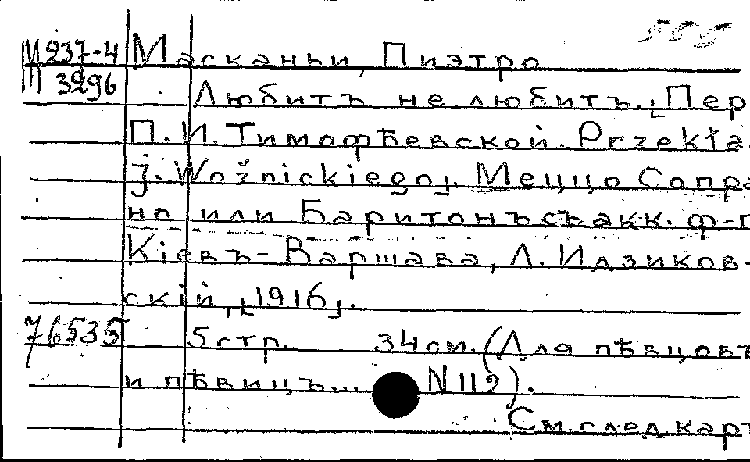 505
М 237-4 Масканьи, Пиэтро
М 3296
Любитъ не любитъ. [Пер
П. И. Тимофѣевской. Przekła
J. Woźnickiego]. Меццо Сопра
но или Баритонъ съ акк. ф-п
Кіевъ-Варшава, Л. Идзиков-
скій, [1916].
76535 5 стр. 34 см. (Для пѣвцовъ
и пѣвицъ... N 112).
См. след. карт